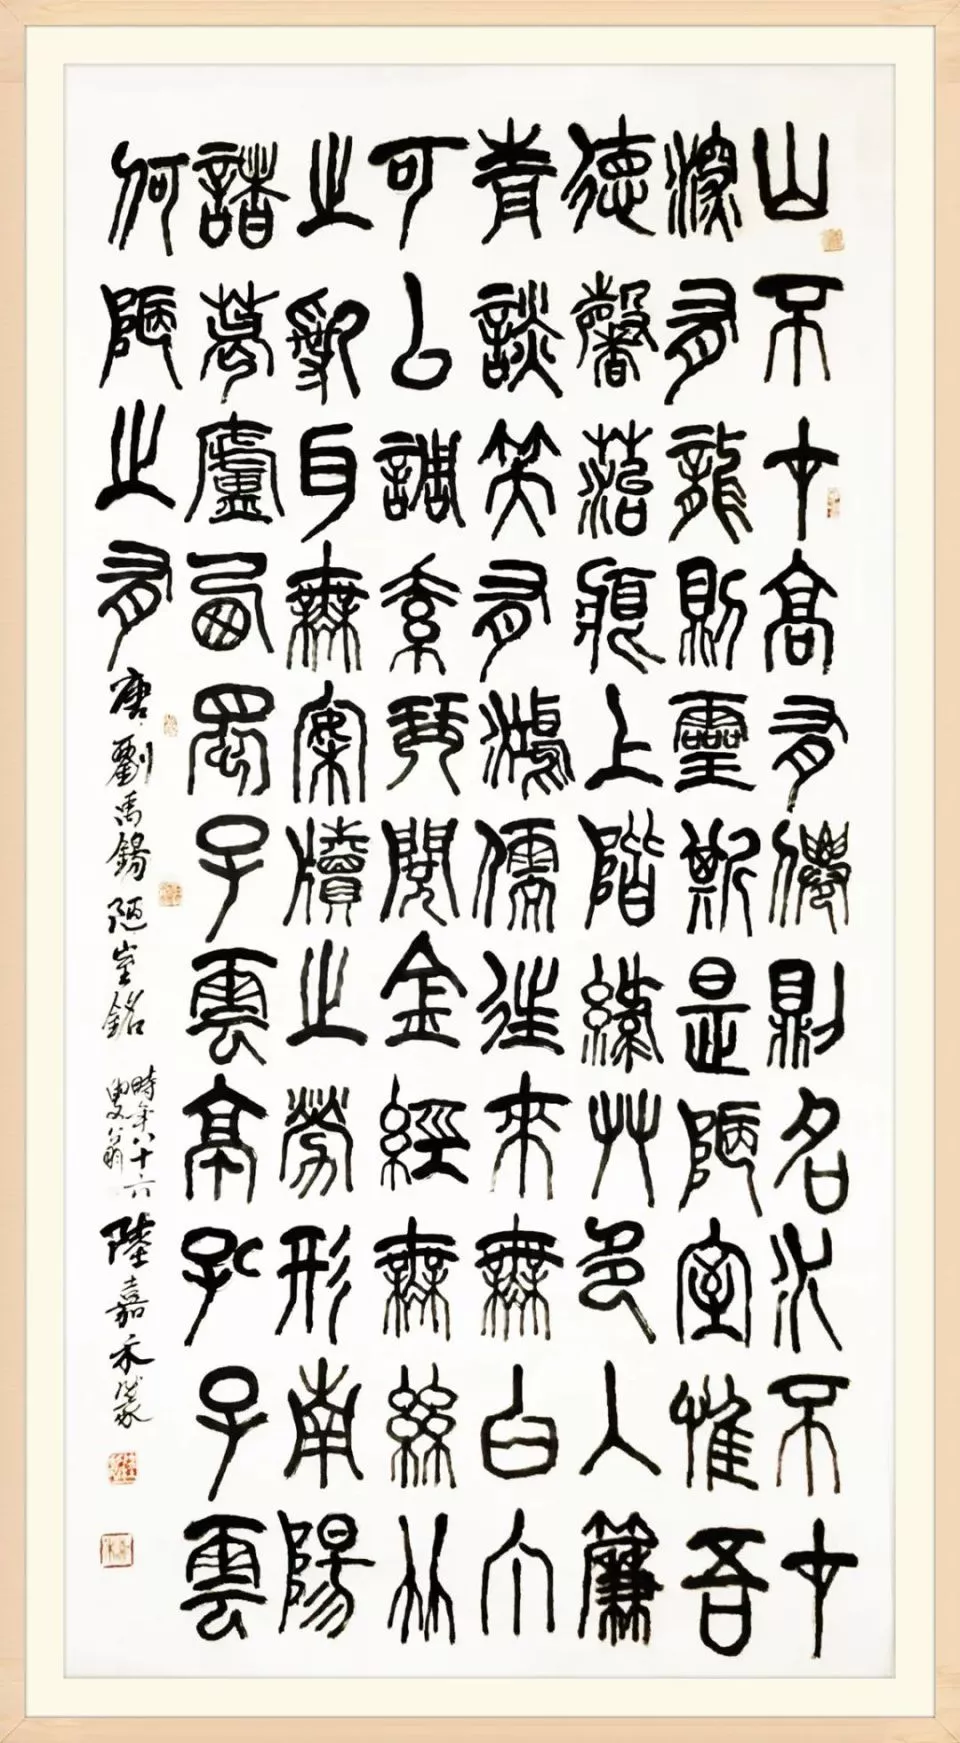 山不在高有僊則名水不在
深有龍則靈斯是陋室惟吾
德馨落痕上階綠艸色入簾
青談笑有鴻儒往來無白丁
可以調素琴閱金經無絲竹
之亂耳無案牘之勞形南陽
諸葛廬西蜀子雲亭孔子雲
何陋之有
唐劉禹錫陋室銘
時年八十六
陸嘉禾篆